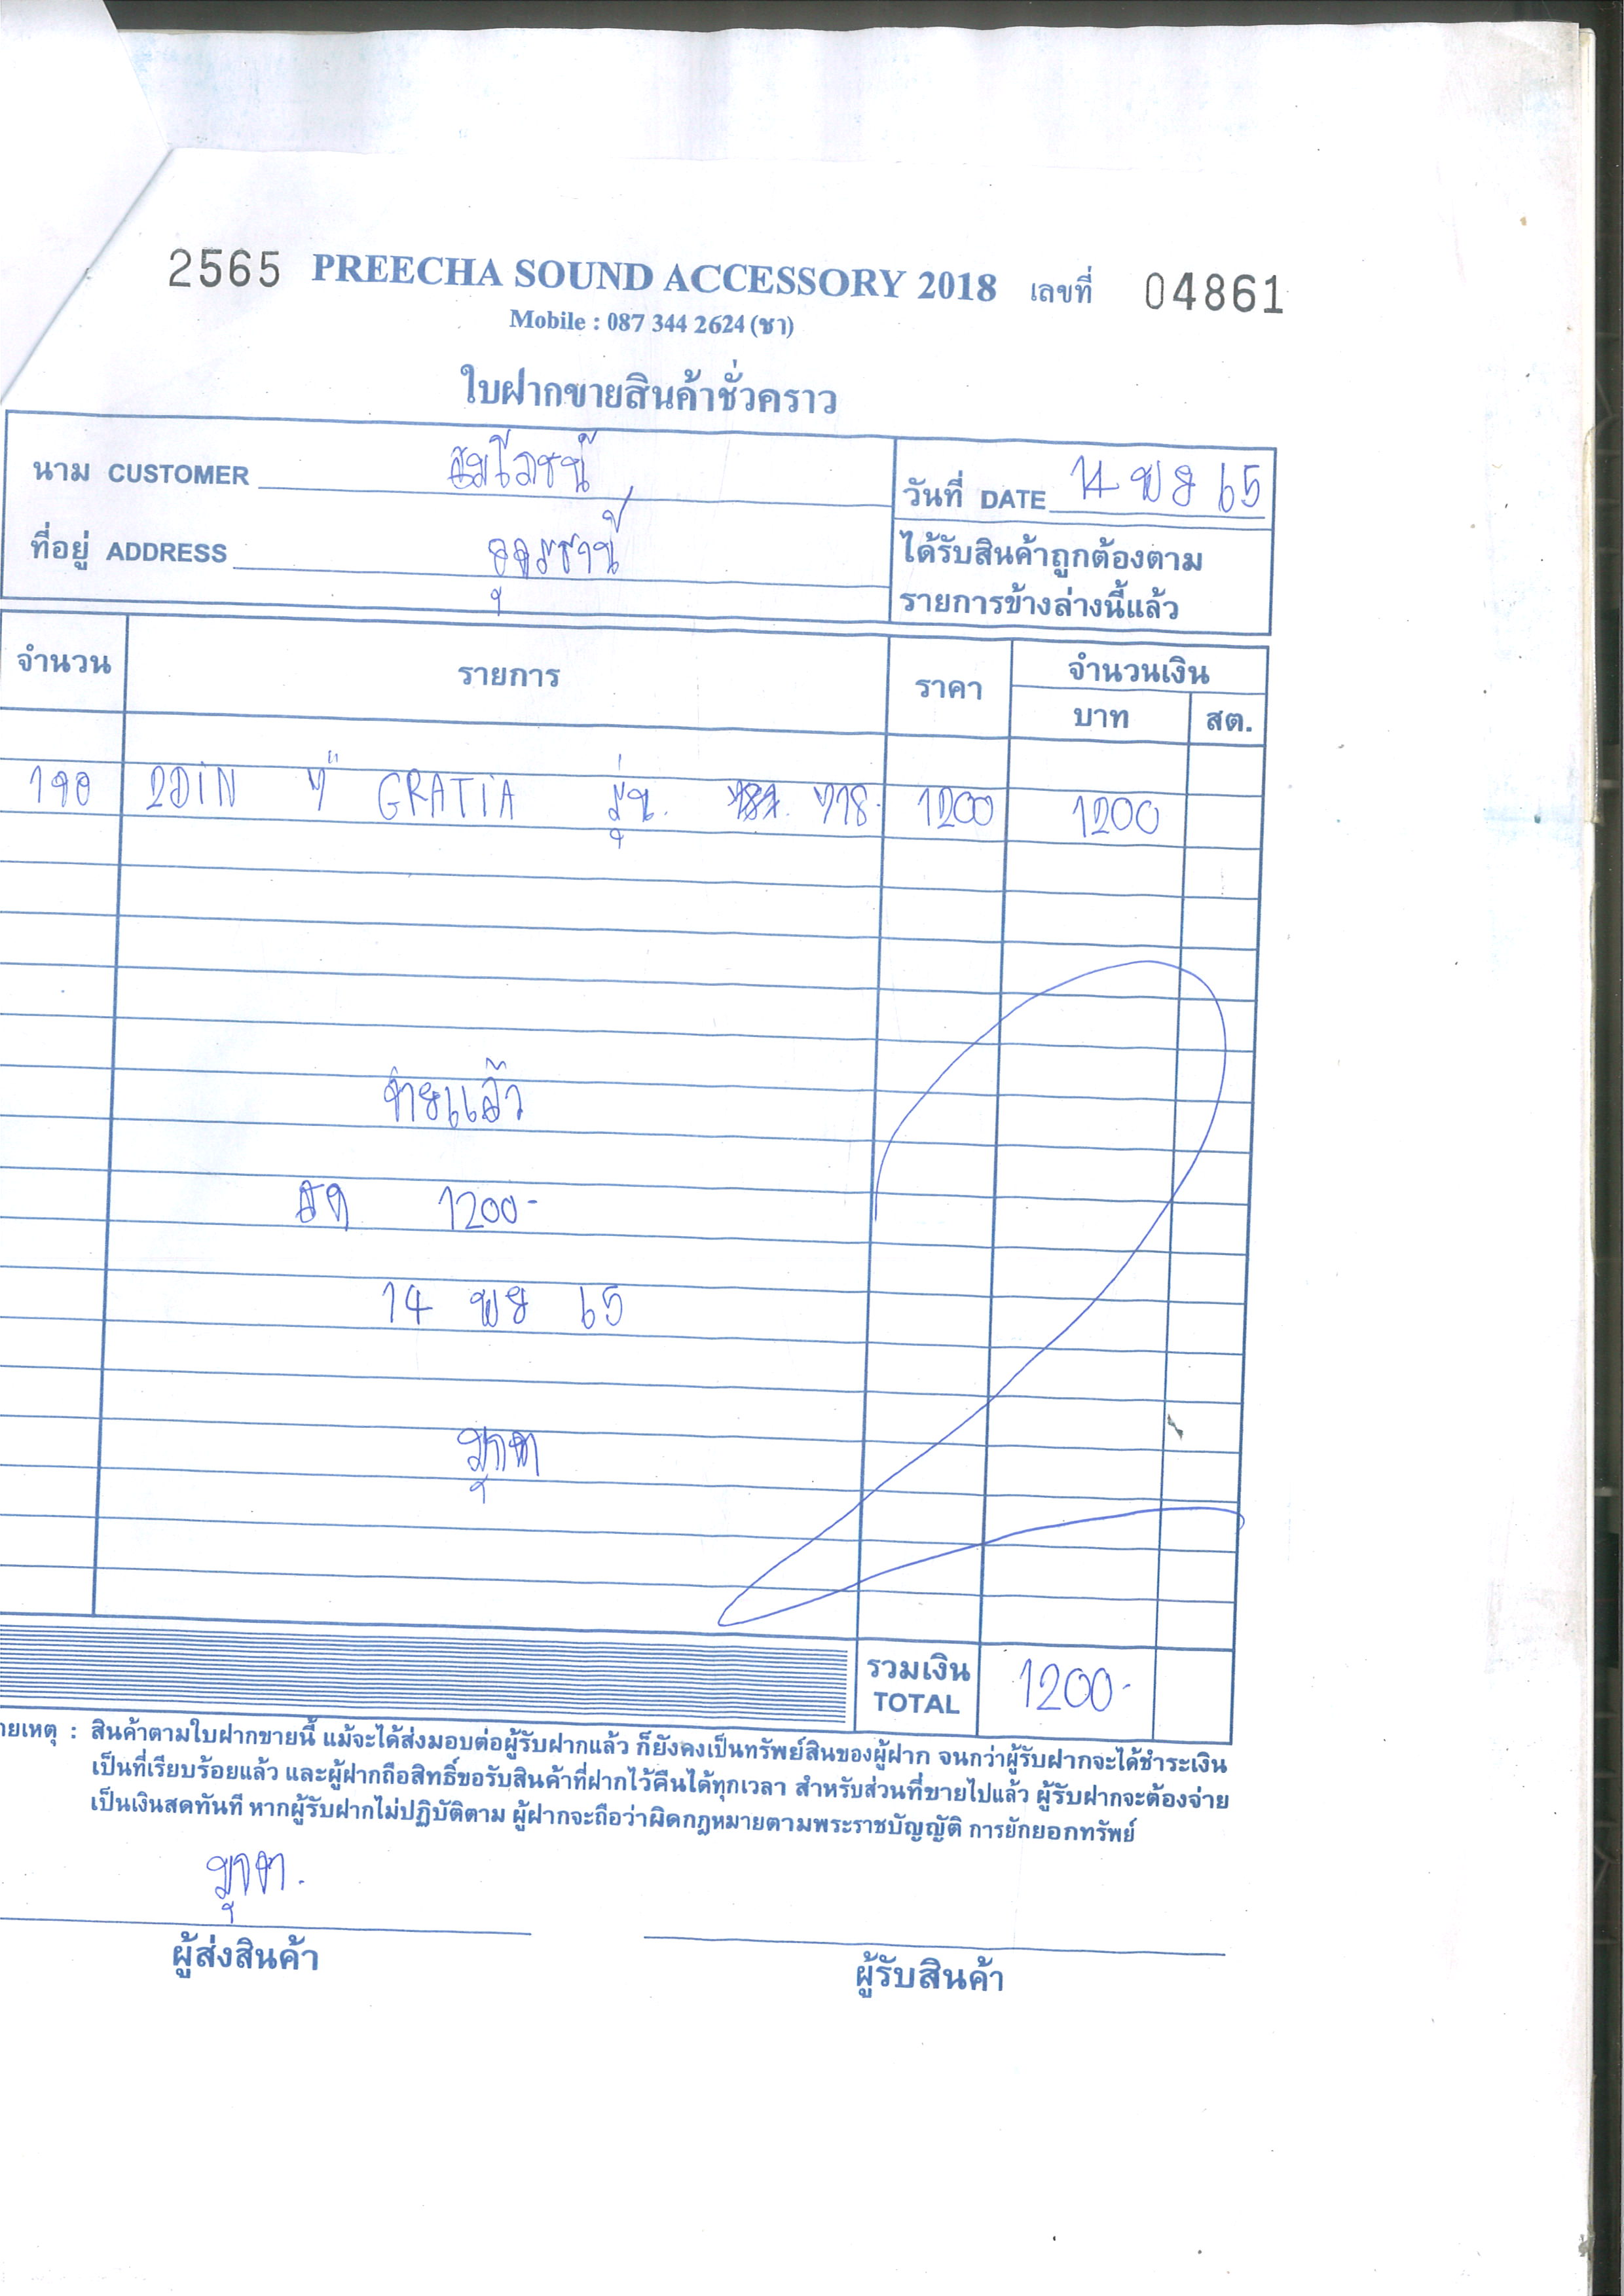 2565 PREECHA SOUND ACCESSORY 2018 เลขที่ 04861
Mobile : 087 344 2624 (ชา)
ใบฝากขายสินค้าชั่วคราว
นาม CUSTOMER
วันที่ DATE 14 พย 65
ที่อยู่ ADDRESS อุดรธานี
ได้รับสินค้าถูกต้องตาม
รายการข้างล่างนี้แล้ว
จำนวน รายการ ราคา จำนวนเงิน
บาท สต.
1จอ 2DIN 7" GRATIA รุ่น. 718. 1200 1200
จ่ายแล้ว
สด 1200-
14 พย 65
รวมเงิน 1200-
TOTAL
ายเหตุ : สินค้าตามใบฝากขายนี้ แม้จะได้ส่งมอบต่อผู้รับฝากแล้ว ก็ยังคงเป็นทรัพย์สินของผู้ฝาก จนกว่าผู้รับฝากจะได้ชำระเงิน
เป็นที่เรียบร้อยแล้ว และผู้ฝากถือสิทธิ์ขอรับสินค้าที่ฝากไว้คืนได้ทุกเวลา สำหรับส่วนที่ขายไปแล้ว ผู้รับฝากจะต้องจ่าย
เป็นเงินสดทันที หากผู้รับฝากไม่ปฏิบัติตาม ผู้ฝากจะถือว่าผิดกฎหมายตามพระราชบัญญัติ การยักยอกทรัพย์
ผู้ส่งสินค้า ผู้รับสินค้า